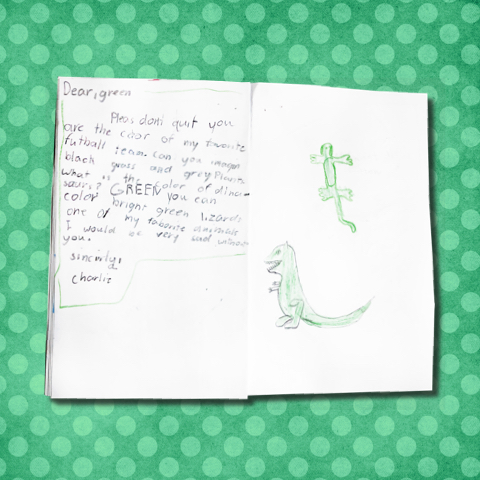 Dear, green
Pleas dont quit you
are the color of my favorite
futball team. Can you imagen
black grass and grey Plants
What is the color of dina-
saurs? GREEN you can
color bright green lizards
one of my favorite animals
I would be very sad without
you.
sincirly,
charlie